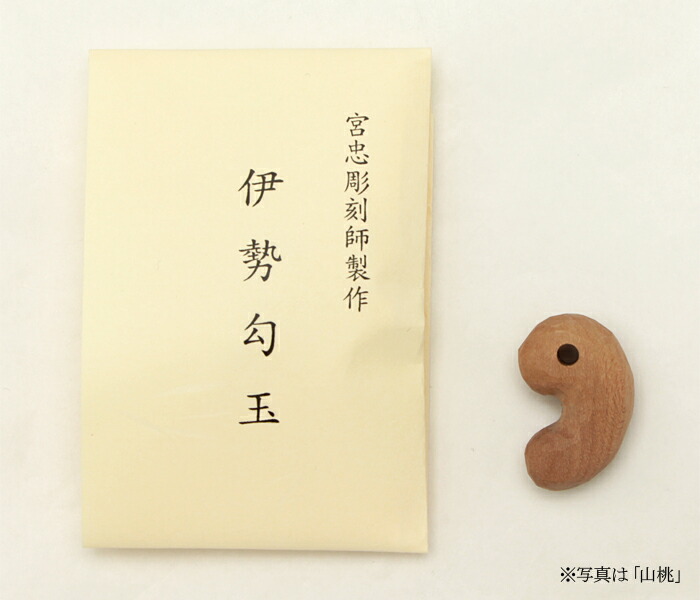 宮忠彫刻師製作
伊勢勾玉
※写真は「山桃」